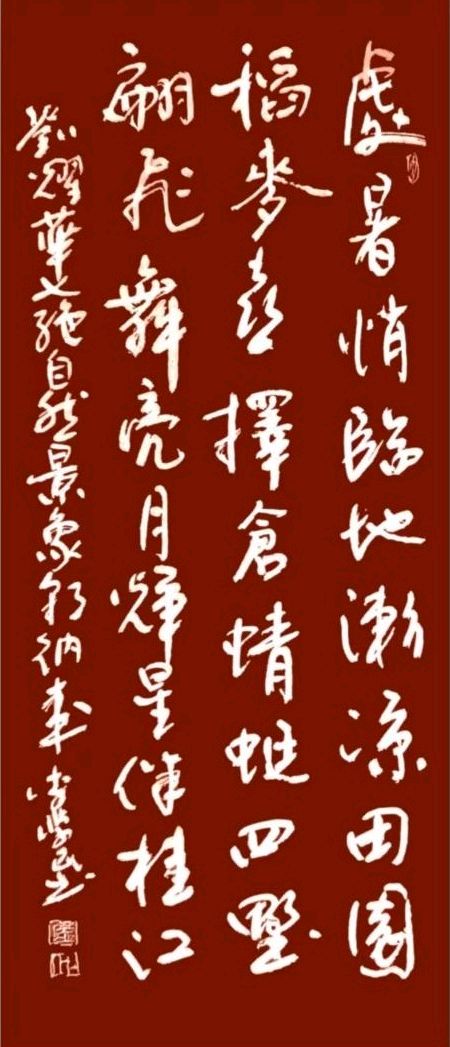 處暑悄臨地漸涼田園
稻麥喜擇倉蜻蜓四野
翩飛舞亮月輝星伴桂江
劉耀華七絕自然景象